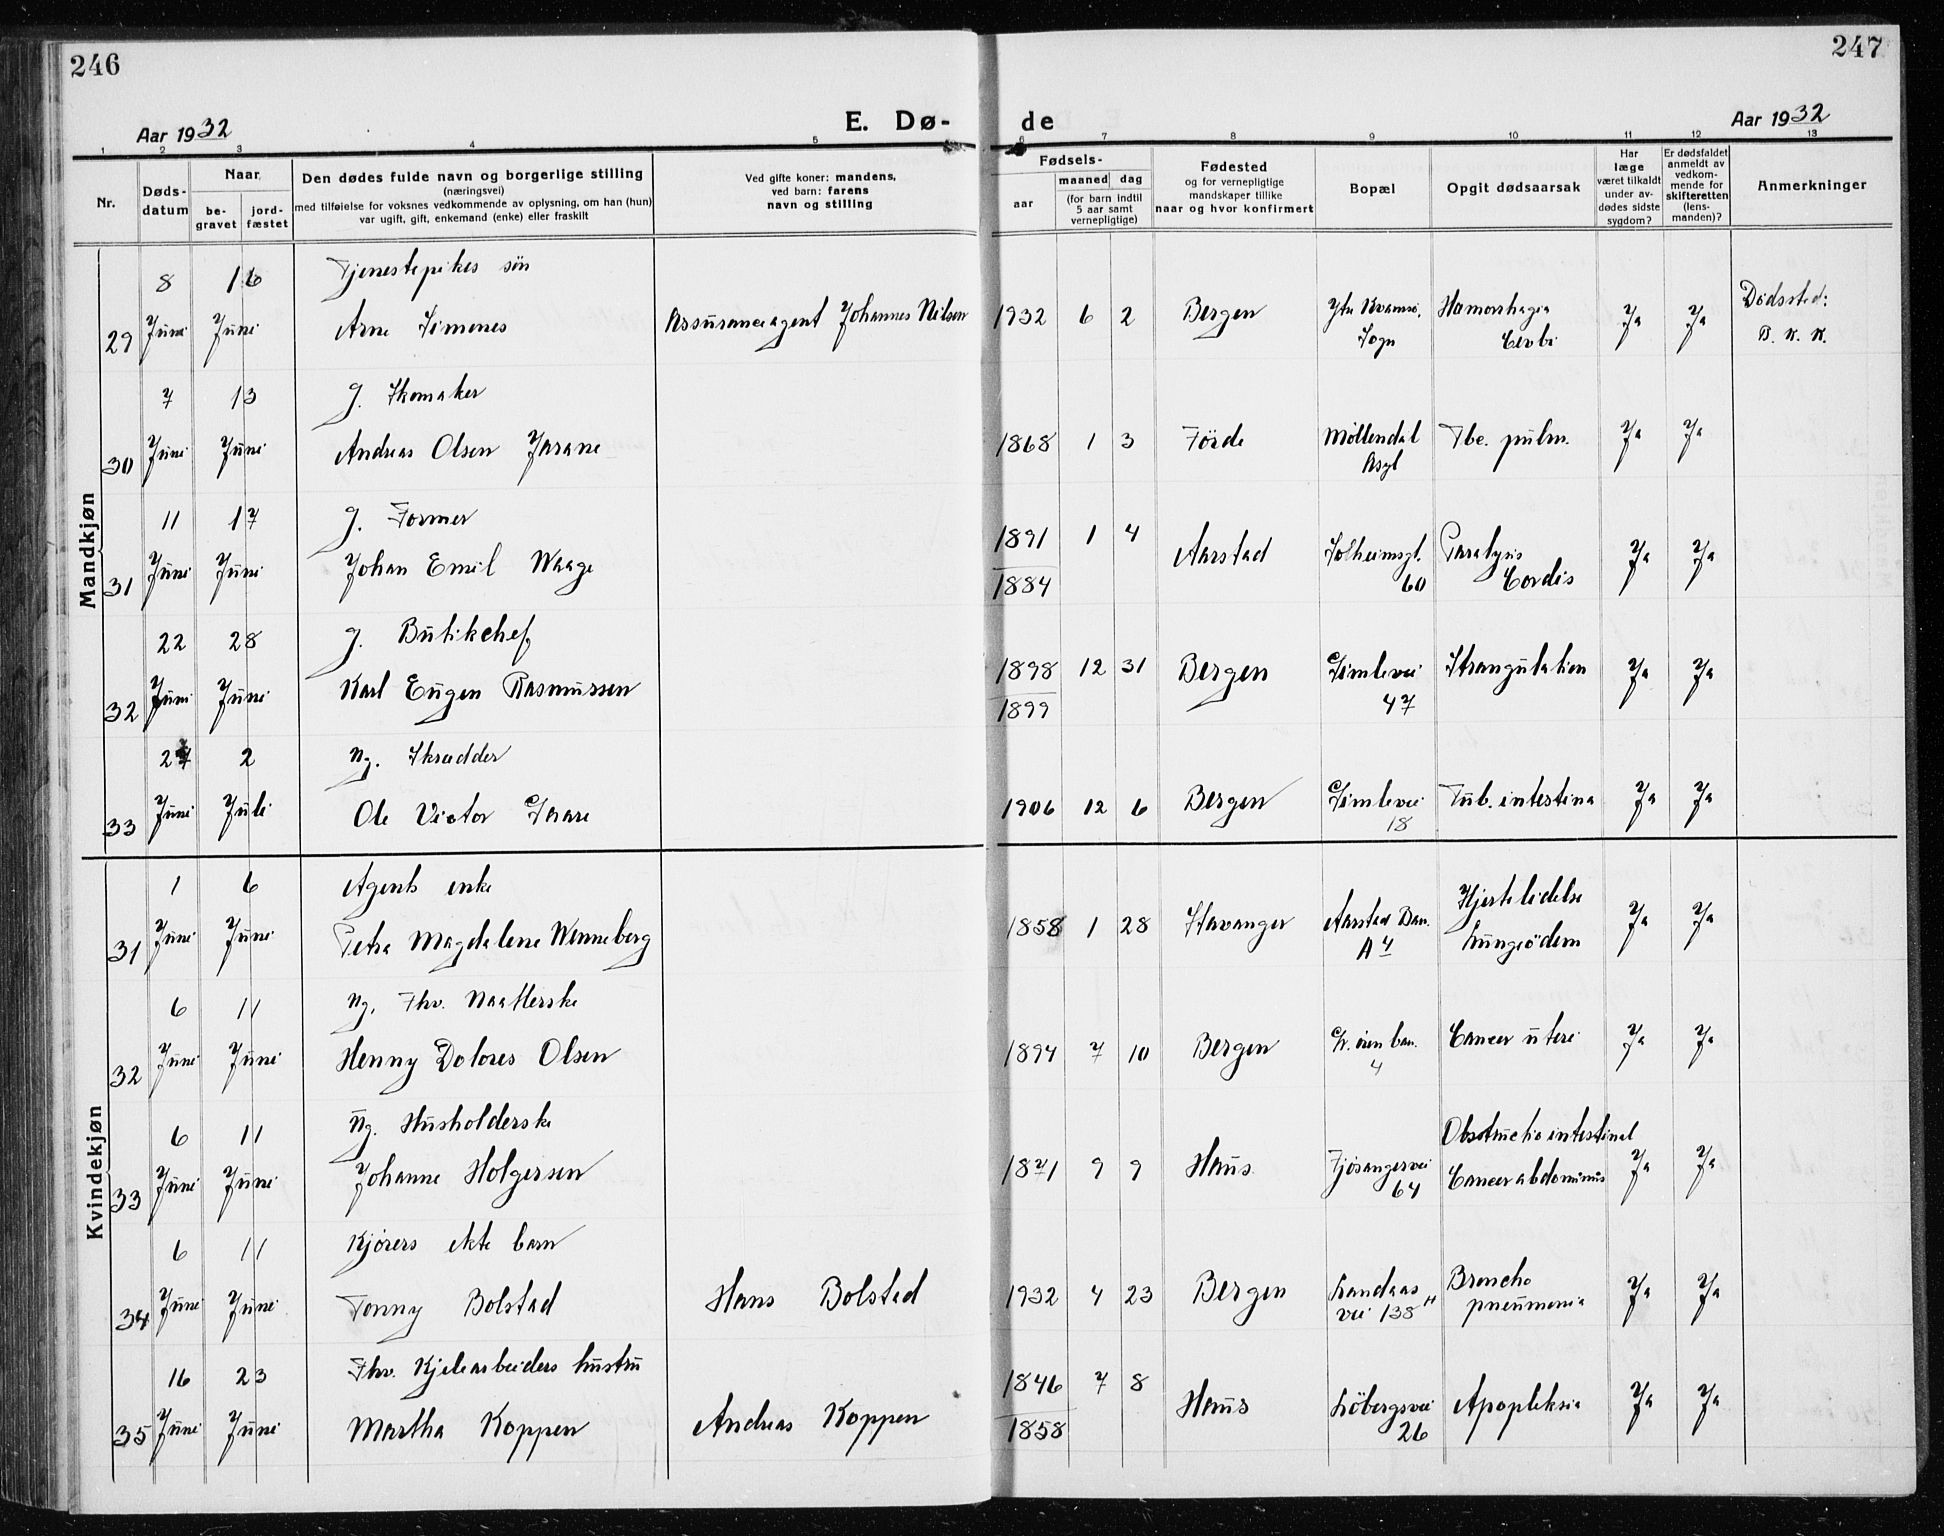 246
247
Aar 1932
E. Dø-
de
Aar 1932
1 2 3 4 5 6 7 8 9 10 11 12 13
Nr.
Døds-
datum
Naar
be-
gravet
jord-
fæstet
Den dødes fulde navn og borgerlige stilling
(næringsvei)
med tilføielse for voksnes vedkommende av oplysning, om han (hun)
var ugift, gift, enkemand (enke) eller fraskilt
Ved gifte koner: mandens,
ved barn: farens
navn og stilling
Fødsels-
aar
maaned
dag
(for barn indtil
5 aar samt
vernepligtige)
Fødested
og for vernepligtige
mandskaper tillike
naar og hvor konfirmert
Bopæl
Opgit dødsaarsak
Har
læge
været tilkaldt
under av-
dødes sidste
sygdom?
Er dødsfaldet
anmeldt av
vedkom-
mende for
skifteretten
(lens-
manden)?
Anmerkninger
Mandkjøn
8 16 Tjenestepikes søn
29 Juni Juni Arne Simenes Assuranceagent Johannes Nilsen 1932 6 2 Bergen Sogn Ja Ja Dødssted:
7 13 g. Skomaker
30 Juni Juni Andreas Olsen Jarane 1868 1 3 Förde Møllendal Asyl Tbc. pulm. Ja Ja
11 17 g. Former
31 Juni Juni Johan Emil Waage 1891 1 4 Aarstad Solheimsgt. 60 Paralysis Cordis Ja Ja
1884
22 28 g. Butikchef
32 Juni Juni Karl Eugen Rasmussen 1898 12 31 Bergen Gimlevei 47 Strangulation Ja Ja
1899
27 2 ug. Skrædder
33 Juni Juli Ole Victor Skaare 1906 12 6 Bergen Gimlevei 18 Tub. intestina Ja Ja
Kvindekjøn
1 6 Agents enke
31 Juni Juni Petra Magdalene Wenneberg 1858 1 28 Stavanger Aarstad A 4 Hjertelidelse Lungeödem Ja Ja
6 11 ug. Fhv.
32 Juni Juni Henny Dolores Olsen 1894 7 10 Bergen 4 Cancer uteri Ja Ja
6 11 ug. Husholderske
33 Juni Juni Johanne Holgersen 1871 9 9 Haus Fjösangervei 64 Obstructio intestinal Cancer abdominis Ja Ja
6 11 Kjörers ekte barn
34 Juni Juni Tonny Bolstad Hans Bolstad 1932 4 23 Bergen Landaas vei 138 Broncho pneumonia Ja Ja
16 23 Fhv. Kjelearbeiders hustru
35 Juni Juni Martha Koppen Andreas Koppen 1846 7 8 Haus Löbergsvei 26 Apopleksia Ja Ja
1858